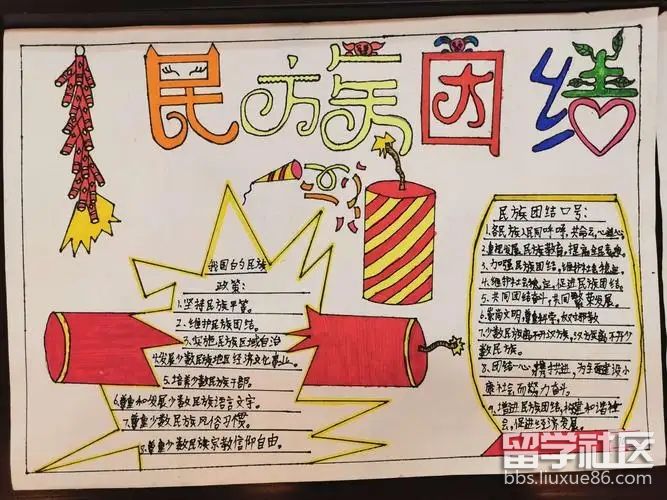 民族团结
我国的民族
政策：
1.坚持民族平等。
2.维护民族团结。
3.实施民族区域自治
4.发展少数民族地区经济文化事业。
5.培养少数民族干部。
6.尊重和发展少数民族语言文字。
7.尊重少数民族风俗习惯。
8.尊重少数民族宗教信仰自由。
民族团结口号：
1.各民族人民同呼吸，共命运，心连心。
2.重视发展民族教育，提高全民素质。
3.加强民族团结，维护社会稳定。
4.维护社会稳定，促进民族团结。
5.共同团结奋斗，共同繁荣发展。
6.崇尚文明，尊重科学，反对邪教
7.少数民族离不开汉族，汉族离不开少
数民族。
8.团结一心 携手共进，为全面建设小
康社会而努力奋斗。
9.增进民族团结，构建和谐社
会，促进经济发展。
留学社区
bbs.liuxue86.com